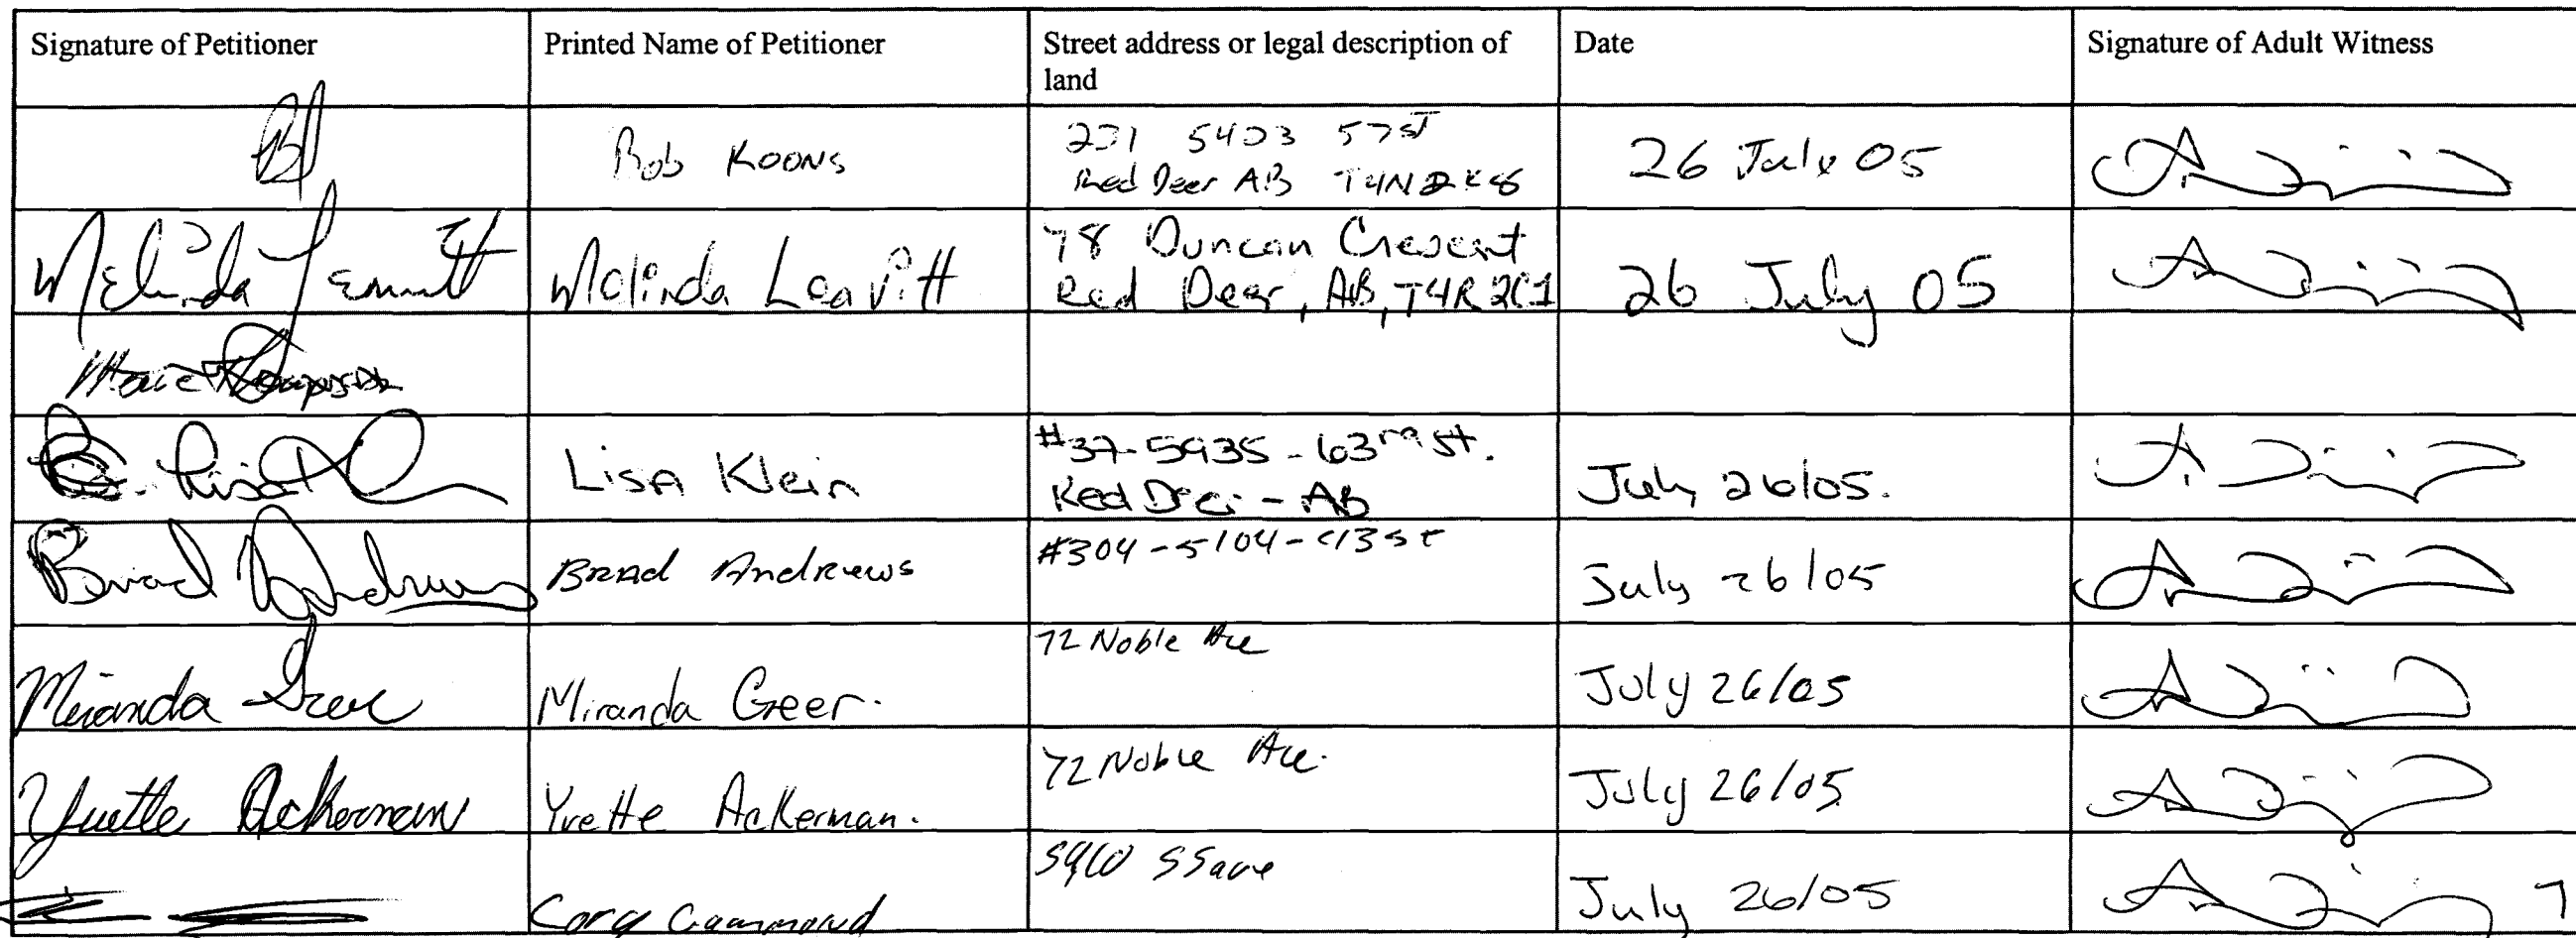 Signature of Petitioner
Printed Name of Petitioner
Street address or legal description of
land
Date
Signature of Adult Witness
Bob Koons
231 5403 57 st
Red Deer AB T4N 2K8
26 July 05
Melinda Leavitt
Melinda Leavitt
78 Duncan Crescent
Red Deer, AB, T4R 2C1
26 July 05
Lisa
Lisa Klein
#37-5935-63rd st.
Red Deer - AB
July 26/05.
Brad Andrews
Brad Andrews
#304-5104-43 st
July 26/05
Miranda Geer
Miranda Geer.
72 Noble Ave
July 26/05
Yvette Ackerman
Yvette Ackerman.
72 Noble Ave.
July 26/05
Cory
55 ave
July 26/05
7